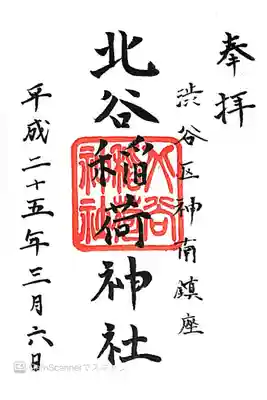 奉拝
渋谷区神南鎮座
北谷稲荷神社
平成二十五年三月六日
CamScannerスマホ